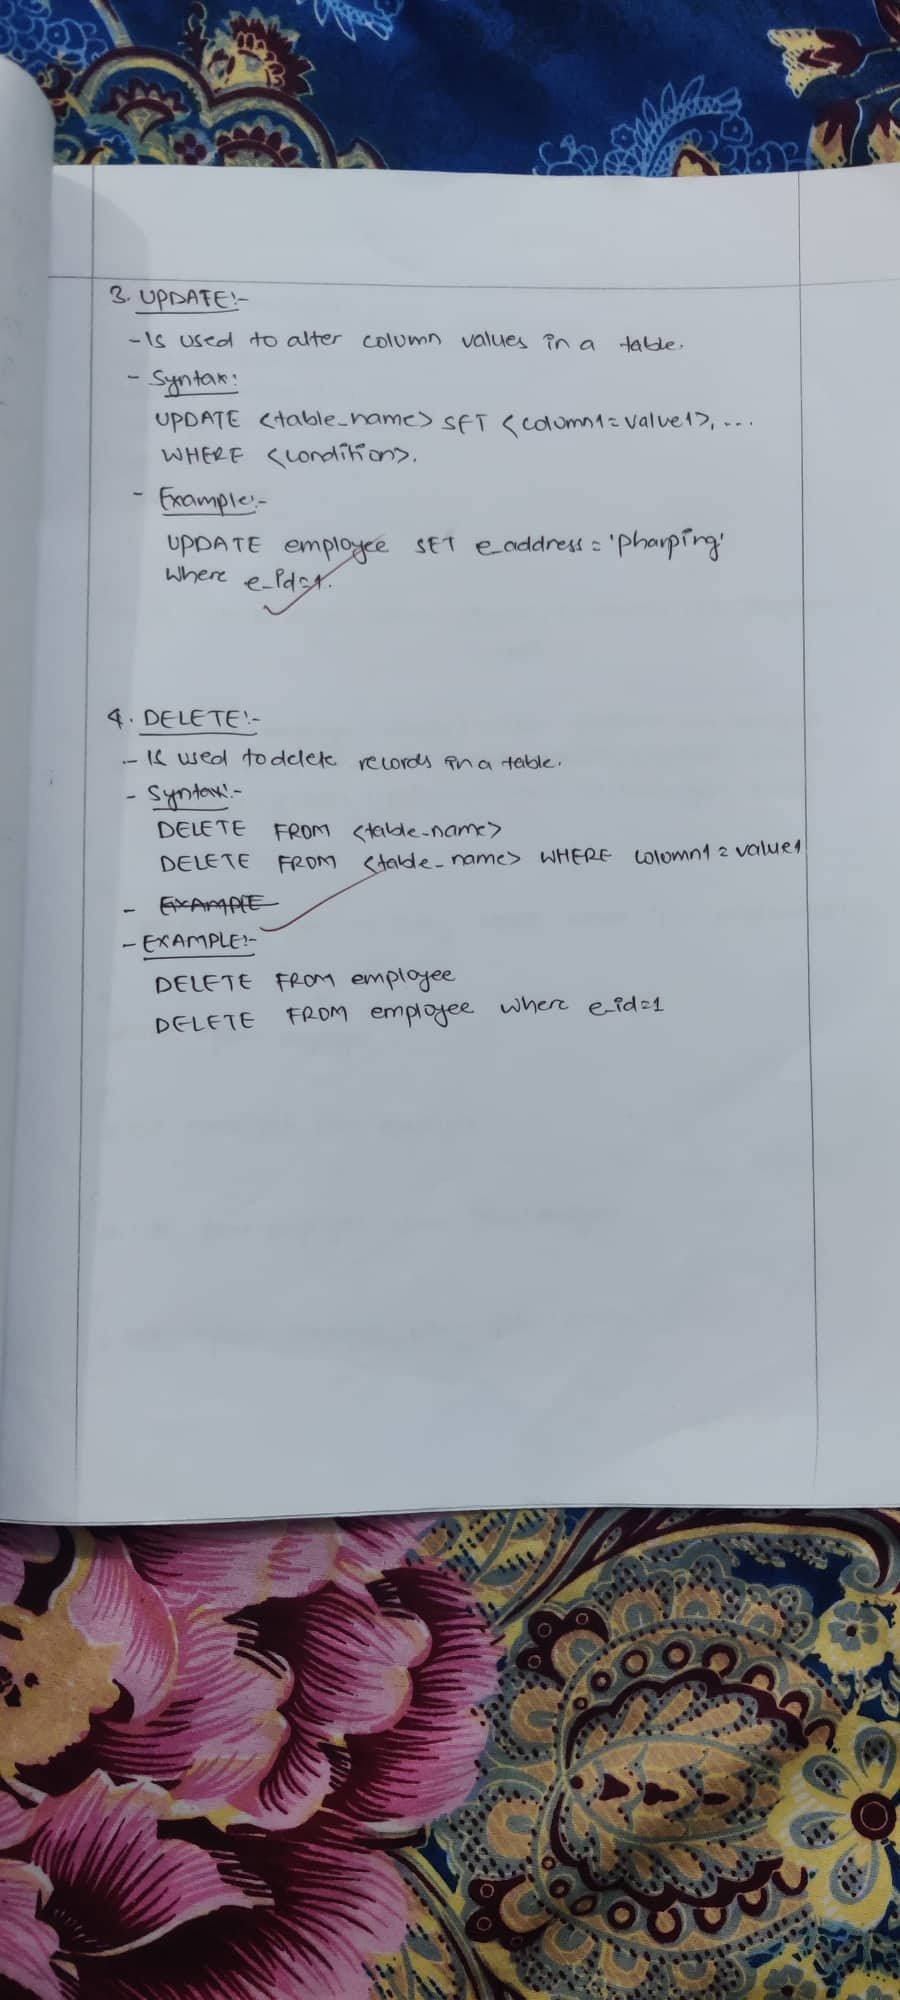 3. UPDATE:-
- Is used to alter column values in a table.
- Syntax:
UPDATE <table_name> SET <column1=value1>, ...
WHERE <condition>.
- Example:-
UPDATE employee SET e_address = 'pharping'
where e_id=1.
4. DELETE:-
- Is used to delete records in a table.
- Syntax:-
DELETE FROM <table-name>
DELETE FROM <table_name> WHERE column1 = value1
- EXAMPLE
- EXAMPLE:-
DELETE FROM employee
DELETE FROM employee where e_id=1